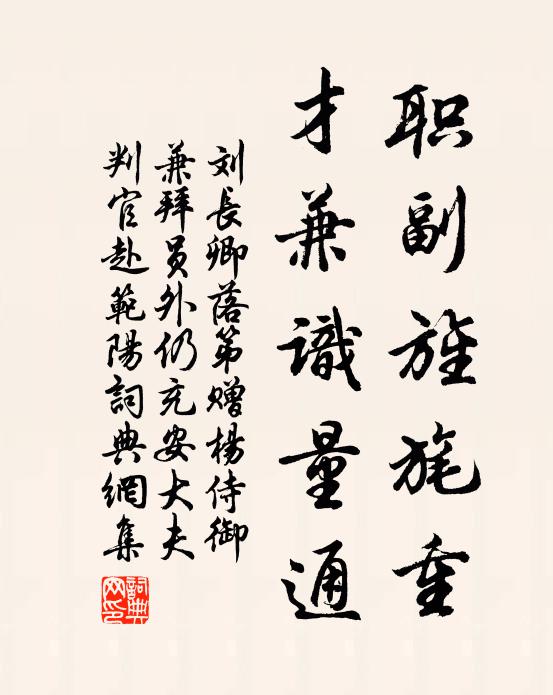 职副旌旄重
才兼識量通
刘長卿落第赠楊侍御
兼拜员外仍充安大夫
判官赴範陽詞典網集
詞典网印